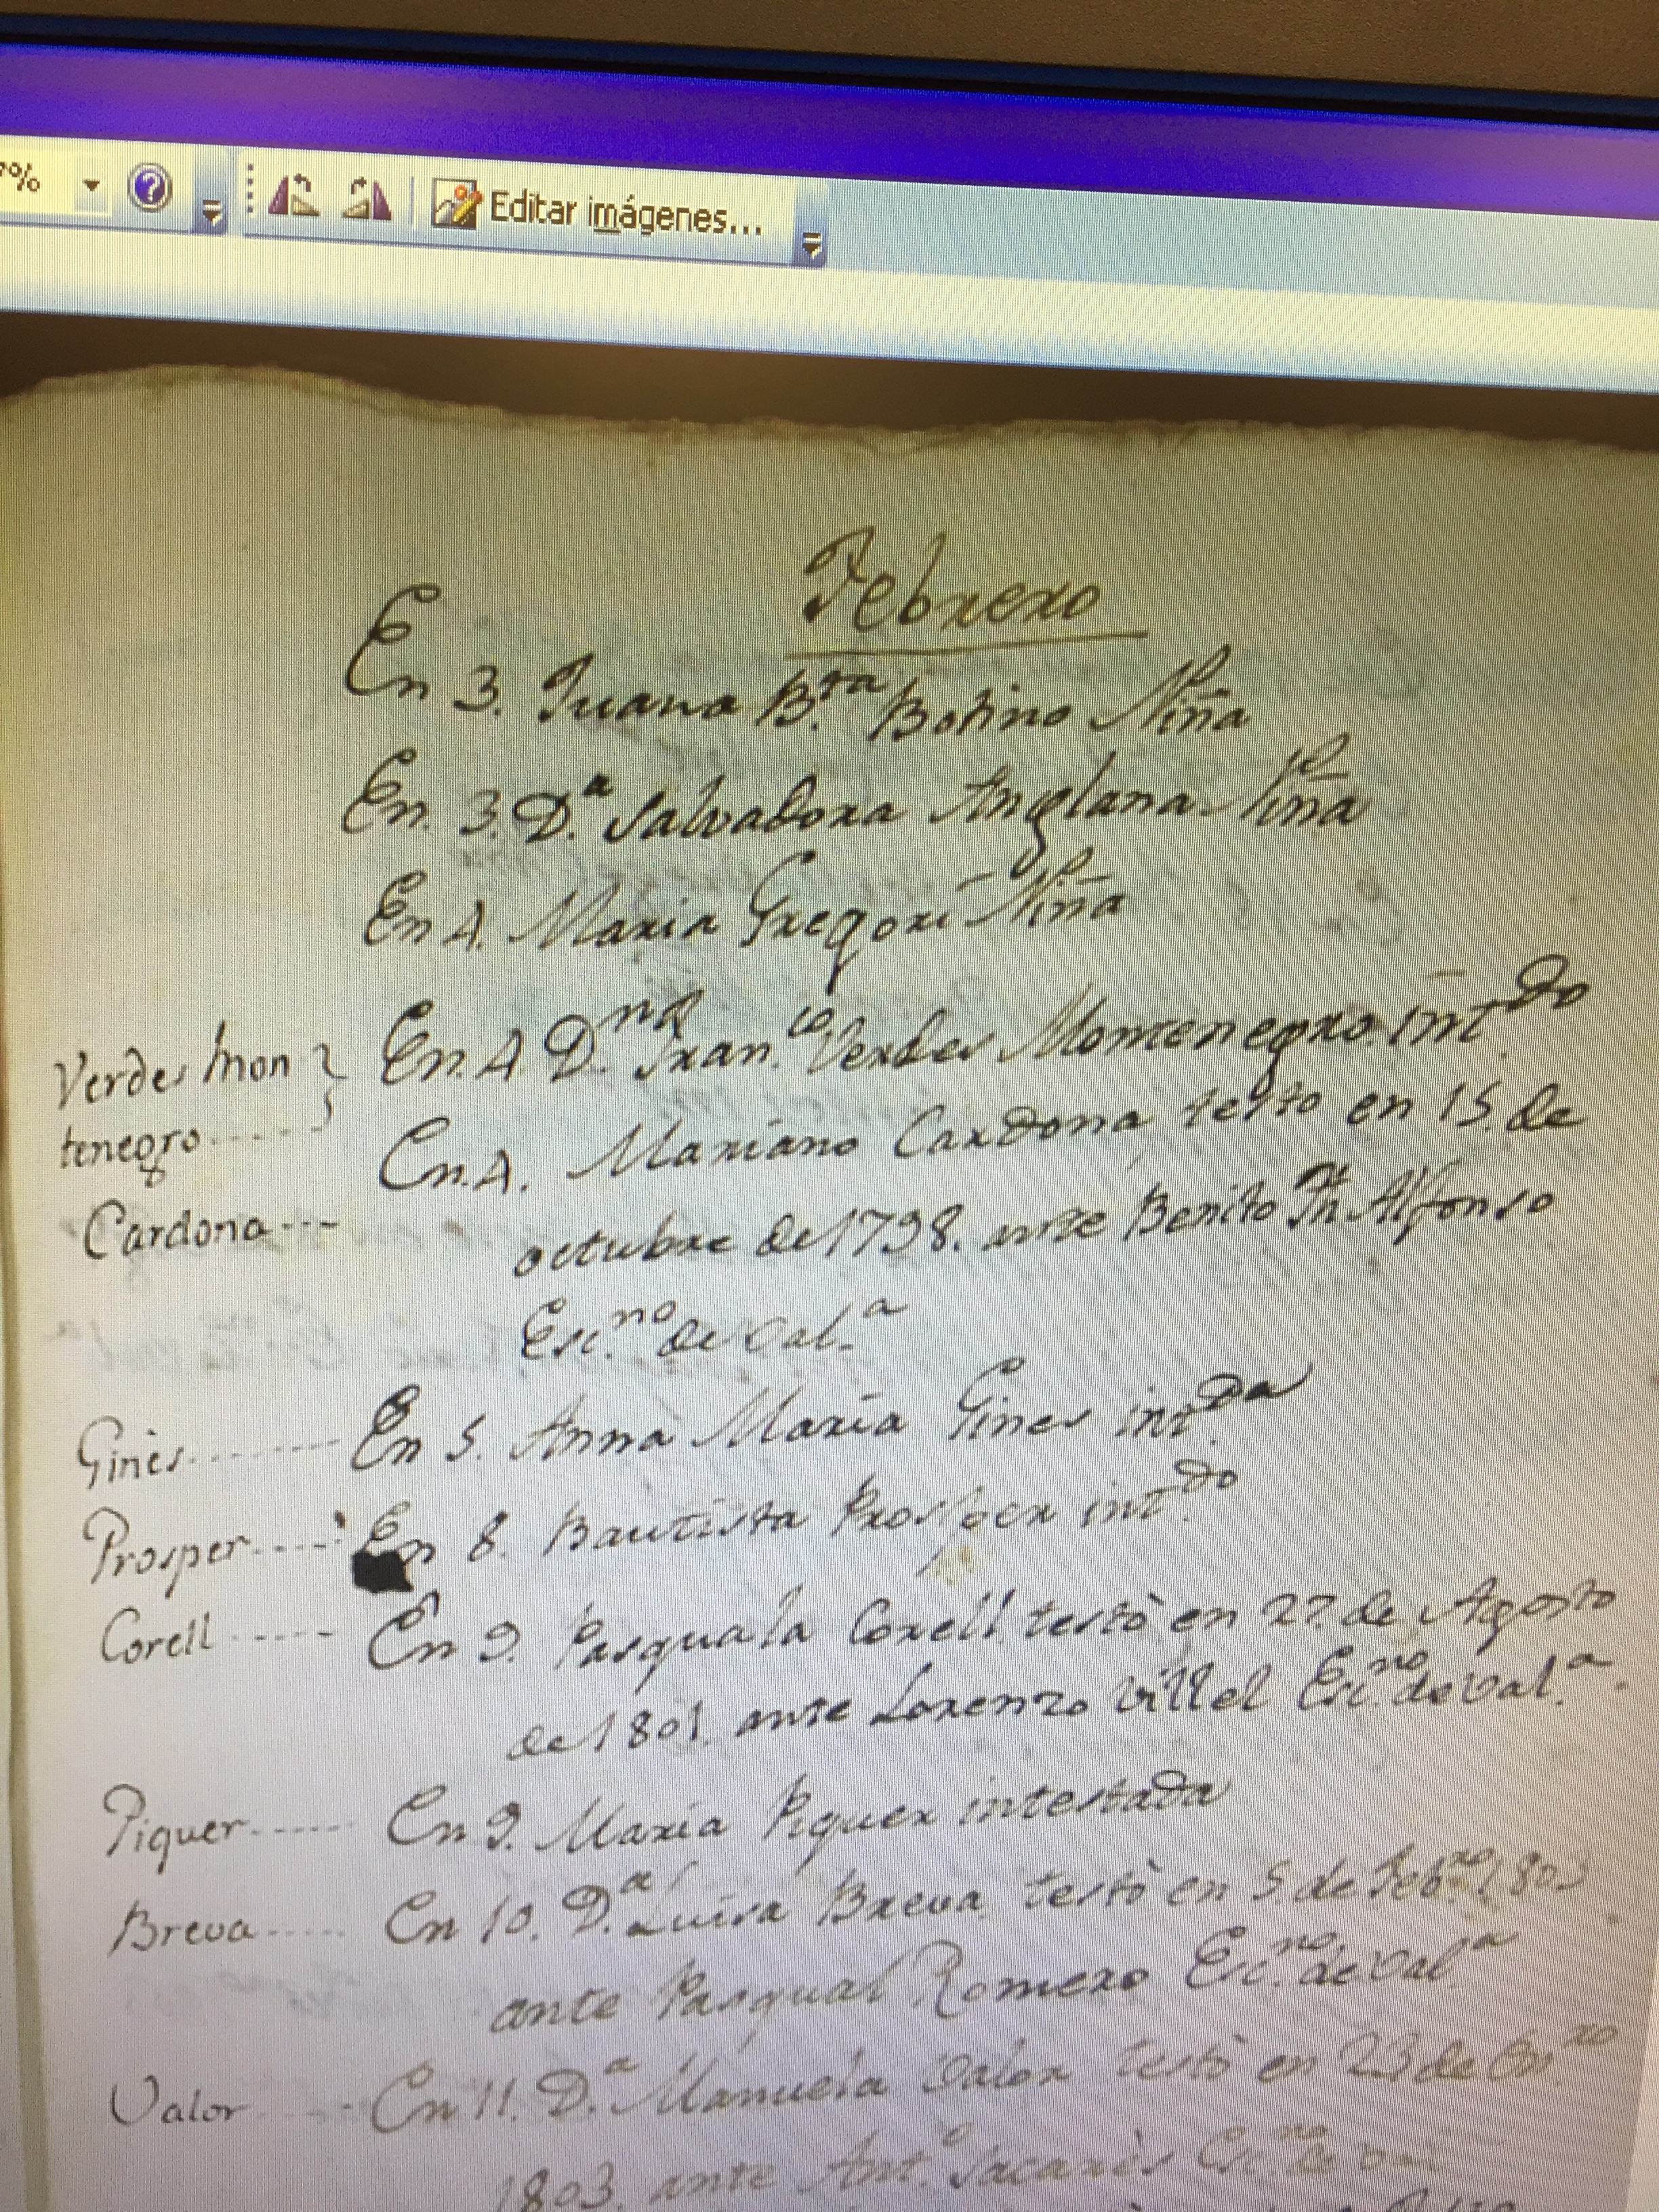 %
Editar imágenes...
Febrero
En 3. Juana B.ta Botino Niña
En. 3. D.a Salvadora Anglana Niña
En 4. Maria Gregori Niña
Verdes Mon
tenegro
En. 4. D.n Fran.co Verdes Montenegro. int.do
Cardona
En. 4. Mariano Cardona testo en 15. de
octubre de 1798. ante Benito Alfonso
Esc.no de Val.a
Gines
En 5. Anna Maria Gines int.da
Prosper
En 8. Bautista Prosper int.do
Corell
En 9. Pasquala Corell testò en 27. de Agosto
de 1801. ante Lorenzo Villel Esc.no de Val.a
Piquer
En 9. Maria Piquer intestada
Breva
En 10. D.a Luisa Breva testò en 5 de Feb.ro 1803
ante Pasqual Romero Esc.no de Val.a
Valor
En 11. D.a Manuela Valor testò en 23 de En.ro
1803. ante Ant.o Sacarès Esc.no de Val